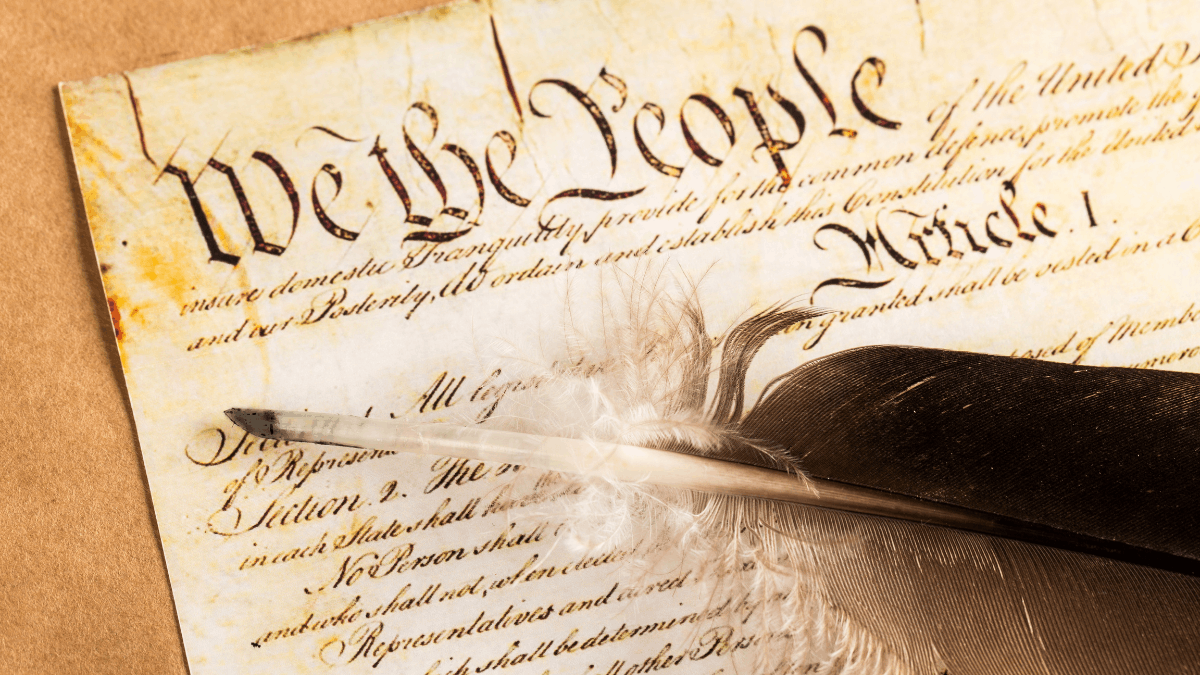 We the People of the United S
insure domestic Tranquility, provide for the common defence, promote the
and our Posterity, do ordain and establish this Constitution for the United
Article. I.
granted shall be vested in a C
All legislative
of Membe
of Represen
Section. 2. The
in each State shall have
No Person shall
and who shall not, when elected
Representatives and direct
shall be determined by a
other Perso